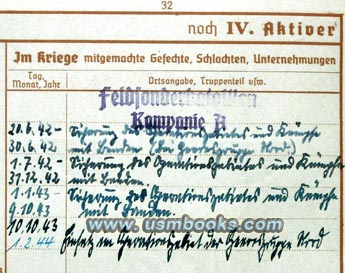 32
noch IV. Aktiver
Im Kriege mitgemachte Gefechte, Schlachten, Unternehmungen
Tag, Monat, Jahr
Ortsangabe, Truppenteil usw.
Feldsonderbataillon
Kompanie A
20.6.42 - Sicherung des Operationsgebietes und Kämpfe
30.6.42 mit Banden (Bei Heeresgruppe Nord)
1.7.42 - Sicherung des Operationsgebietes und Kämpfe
31.12.42 mit Banden
1.1.43 - Sicherung des Operationsgebietes und Kämpfe
9.10.43 mit Banden.
www.usmbooks.com
10.10.43
1.2.44 Einsatz im Operationsgebiet der Heeresgruppe Nord